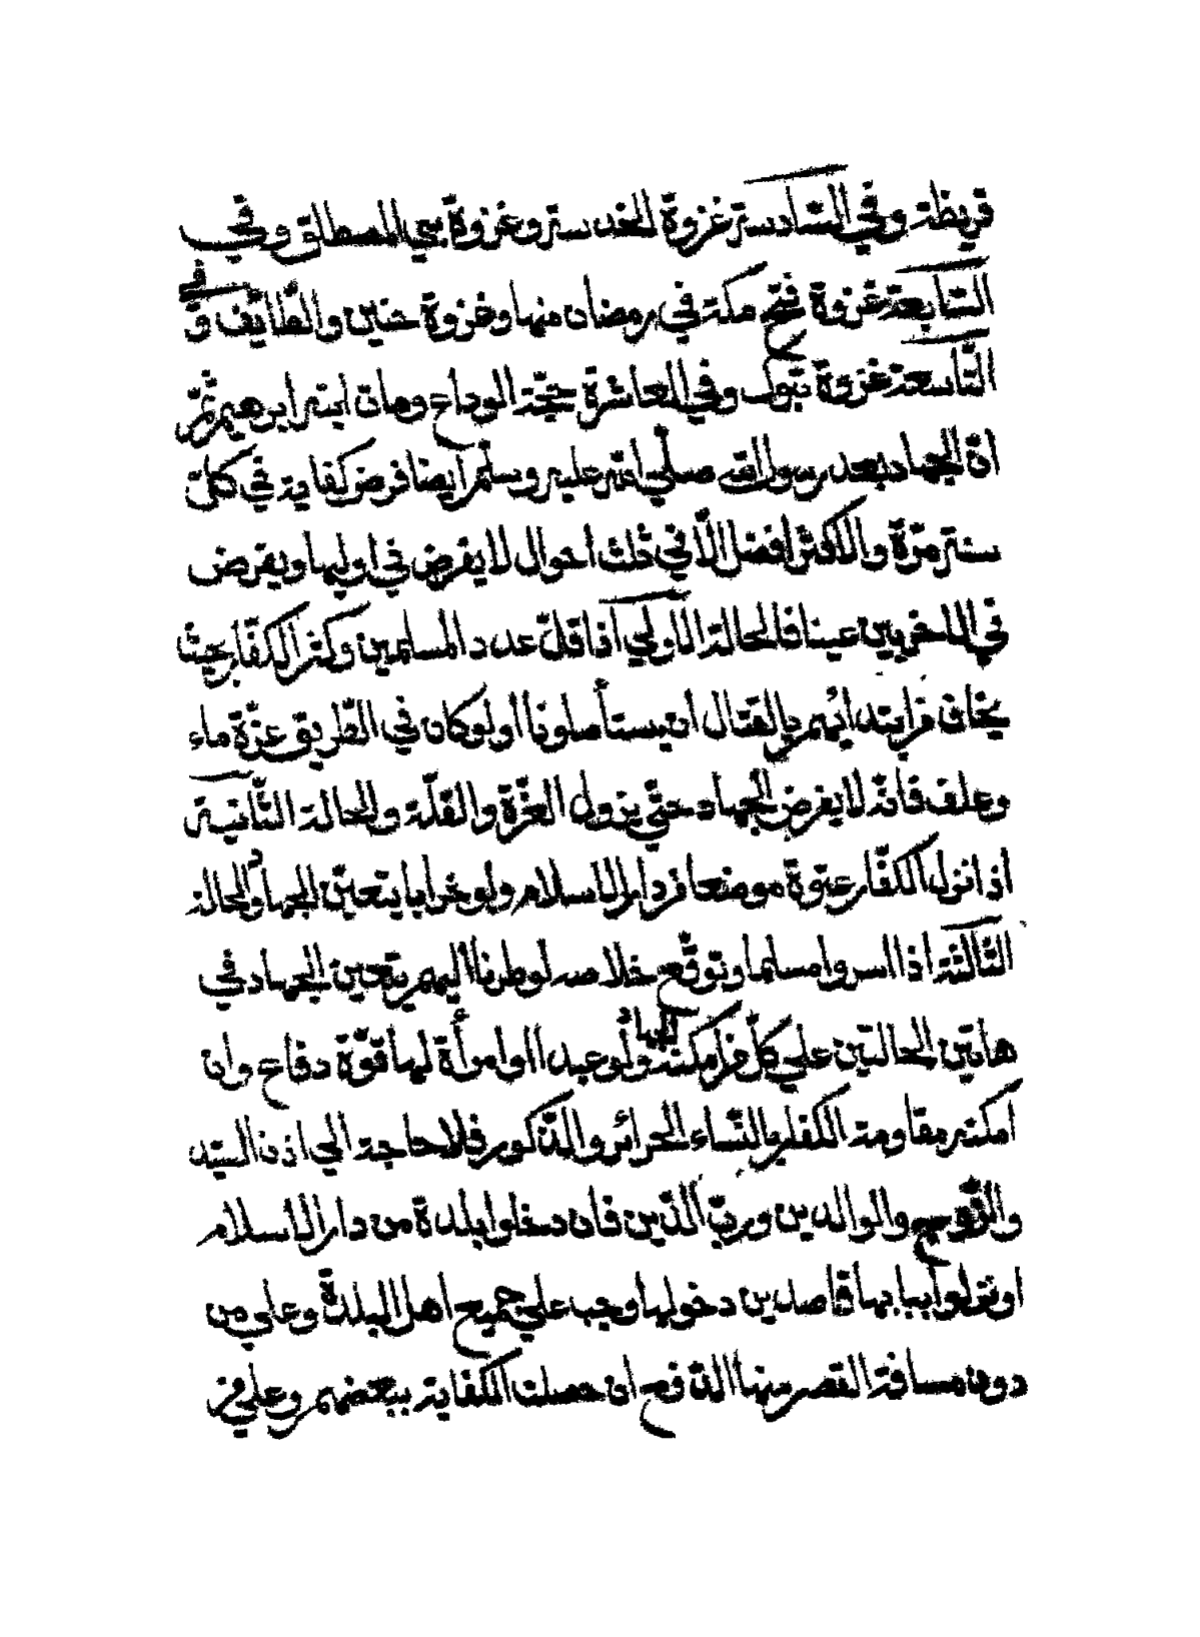 قريظة وفي السّادسة غزوة الخندسة وغزوة بني المصطلق وفي
السّابعة غزوة فتح مكة في رمضان منها وغزوة حنين والطّايف وفي
التّاسعة غزوة تبوك وفي العاشرة حجّة الوداع ومات ابنه ابرهيم ثمّ
انّ الجهاد بعد رسول الله صلّي الله عليه وسلّم ايضا فرض كفاية في كلّ
سنة مرّة والاكثر افضل الّا في ثلث احوال لا يفرض في اوليها ويفرض
في الاخريين عينا فالحالة الاولي اذا قلّ عدد المسلمين وكثر الكفّار بحيث
يخاف من ابتدائهم بالقتال ان يستأصلونا او لو كان في الطّريق عزّة ماء
وعلف فانّه لا يفرض الجهاد حتّي يزول العزّة والقلّة والحالة الثّانية
اذا نزل الكفّار عنوة موضعا من دار الاسلام ولو خرابا يتعيّن الجهاد والحالة
الثّالثة اذا اسروا مسلما وتوقّع خلاصه لو طرنا اليهم يتعين الجهاد في
هاتين الحالتين علي كلّ من امكنه الجهاد ولو عبدا او امرأة لها قوّة دفاع وان
امكنه مقاومة الكفار بالنّساء الحرائر والذّكور فلا حاجة الي اذن السيّد
والزّوج والوالدين وربّ الدّين فان دخلوا بلدة من دار الاسلام
او نزلوا ببابها قاصدين دخولها وجب علي جميع اهل البلدة وعلي من
دون مسافة القصر منها الدّفع ان حصلت الكفاية ببعضهم وعلي من